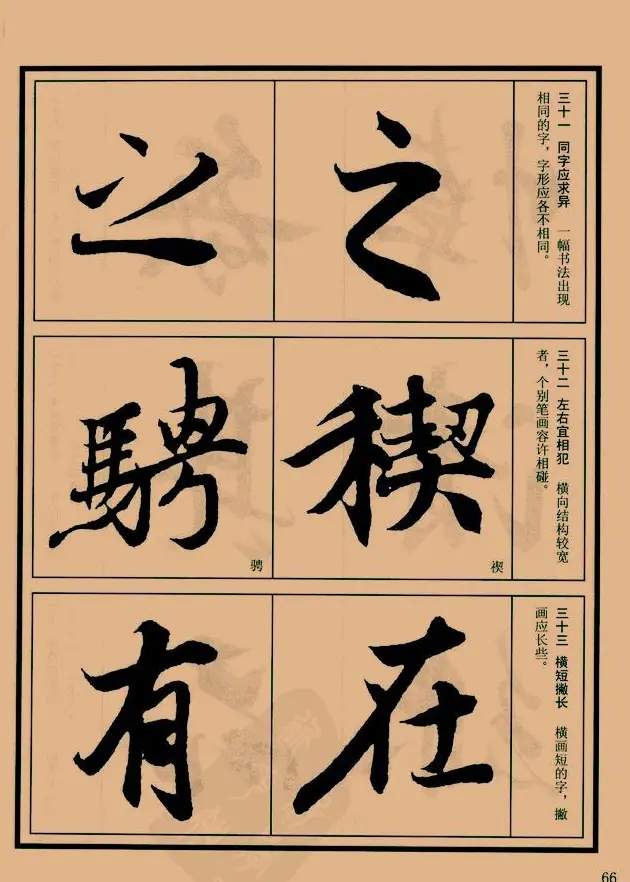 三十一 同字应求异 一幅书法出现
相同的字，字形应各不相同。
之
之
三十二 左右宜相犯 横向结构较宽
者，个别笔画容许相碰。
禊
禊
骋
騁
三十三 横短撇长 横画短的字，撇
画应长些。
在
有
66